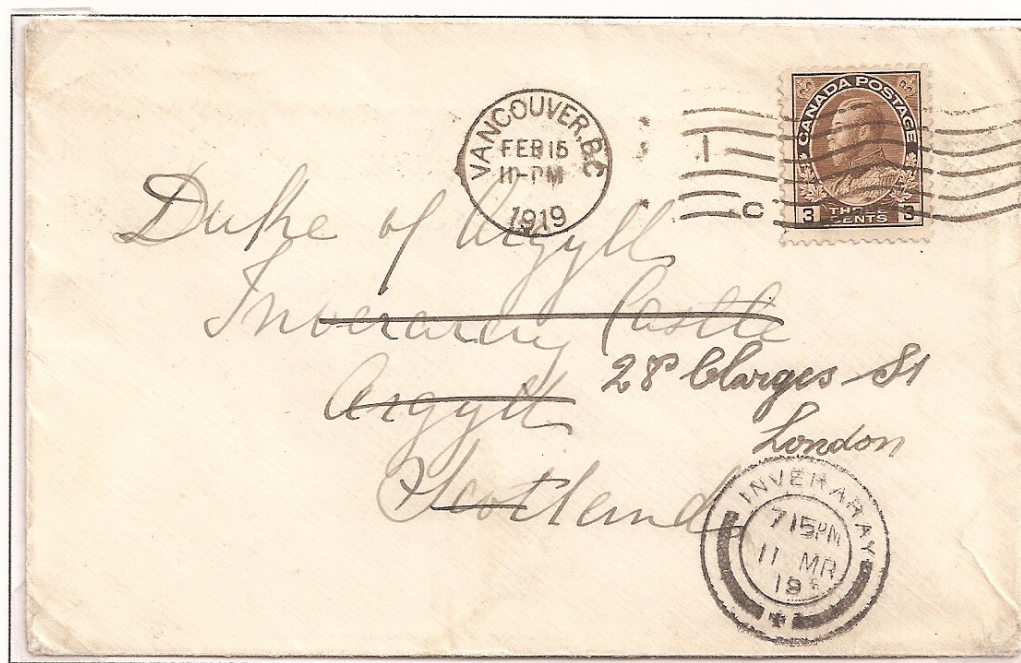 VANCOUVER, B.C
FEB 15
10-PM
1919
CANADA POSTAGE
3 THREE CENTS 3
C
Duke of Argyll
Inverarey Castle
Argyll
28 Clarges St
London
Scotland
INVERARAY
7 15 PM
11 MR
19